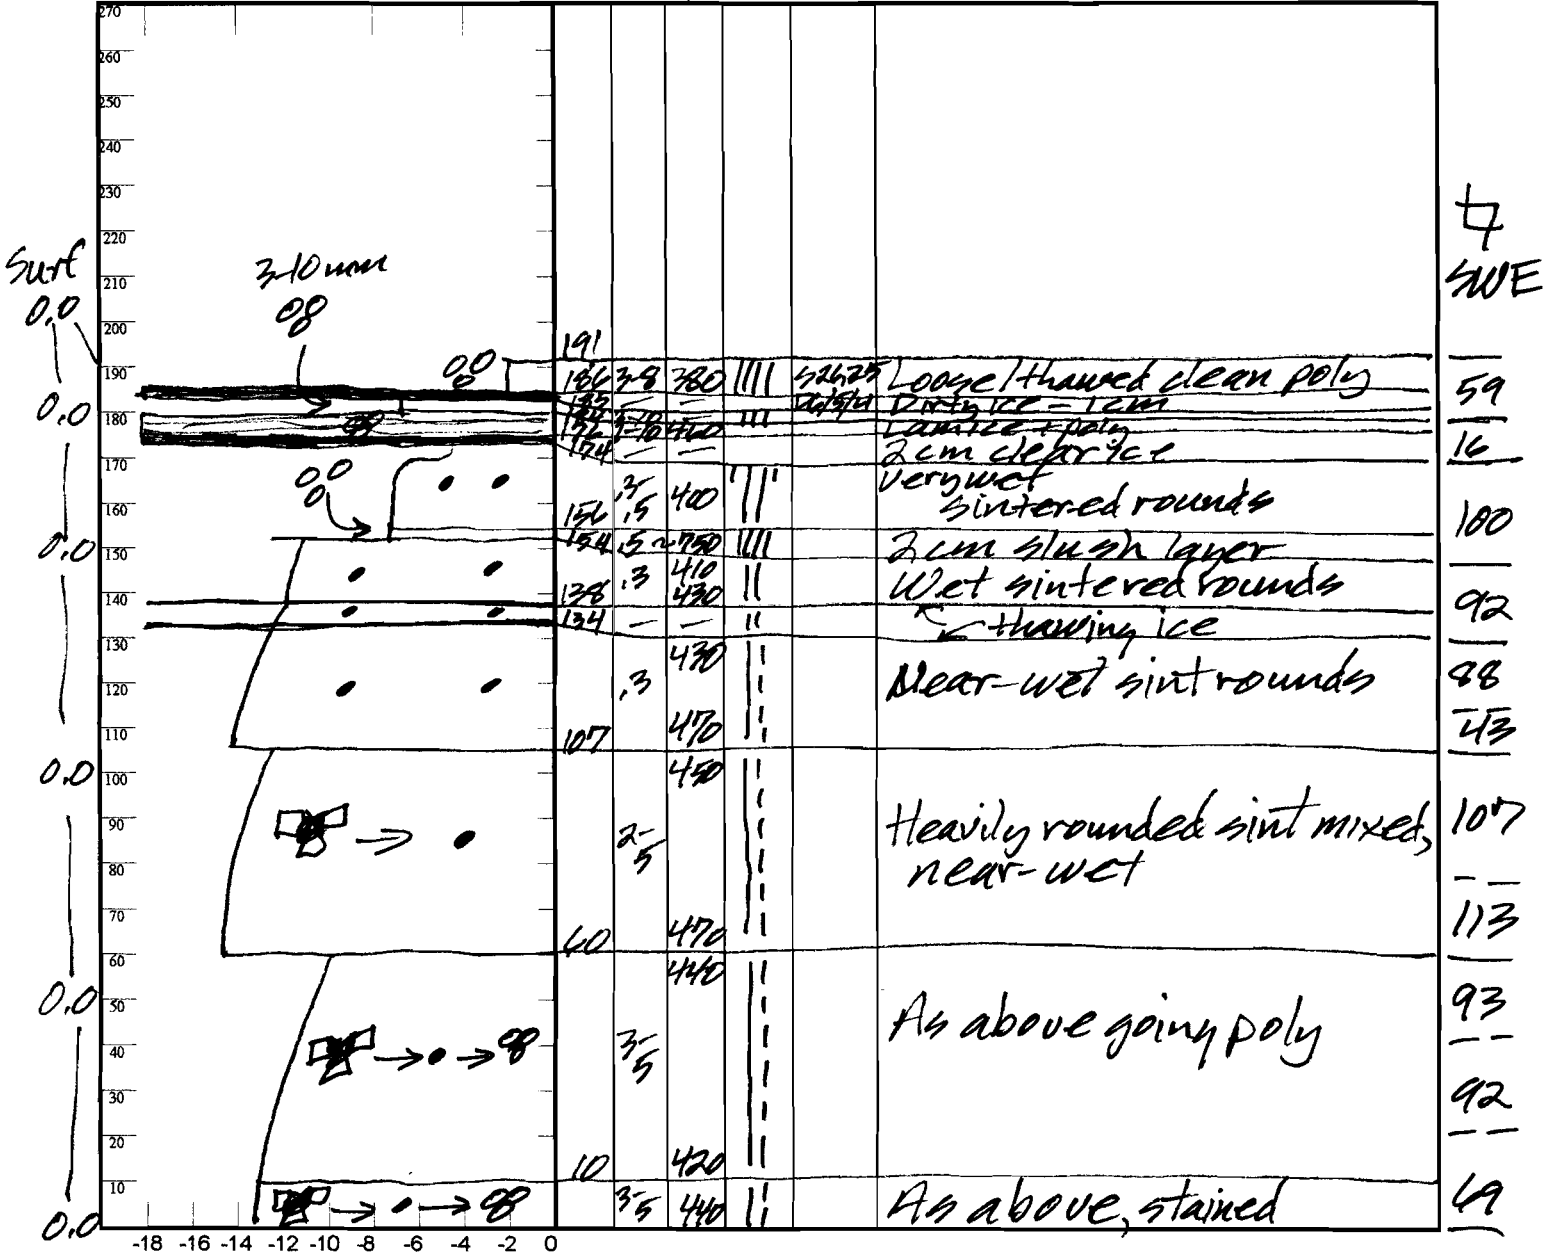 270
260
250
240
230
220
210
200
190
180
170
160
150
140
130
120
110
100
90
80
70
60
50
40
30
20
10
-18 -16 -14 -12 -10 -8 -6 -4 -2 0
Surf
0.0
0.0
0.0
0.0
0.0
0.0
3-10mm
SWE
191
186 3-8 380 Loose/thawed clean poly 59
185 — — Dirty ice - 1cm
460 Lam ice + poly
174 — — 2cm clear ice 16
very wet
156 .3-.5 400 sintered rounds 100
154 .5 ~750 2cm slush layer
.3 410
138 430 Wet sintered rounds 92
134 — — thawing ice
430
.3 Near-wet sint rounds 88
107 470 43
450
2-5 Heavily rounded sint mixed, 107
near-wet
60 470 113
440
3-5 As above going poly 93
92
10 420
3-5 440 As above, stained 69